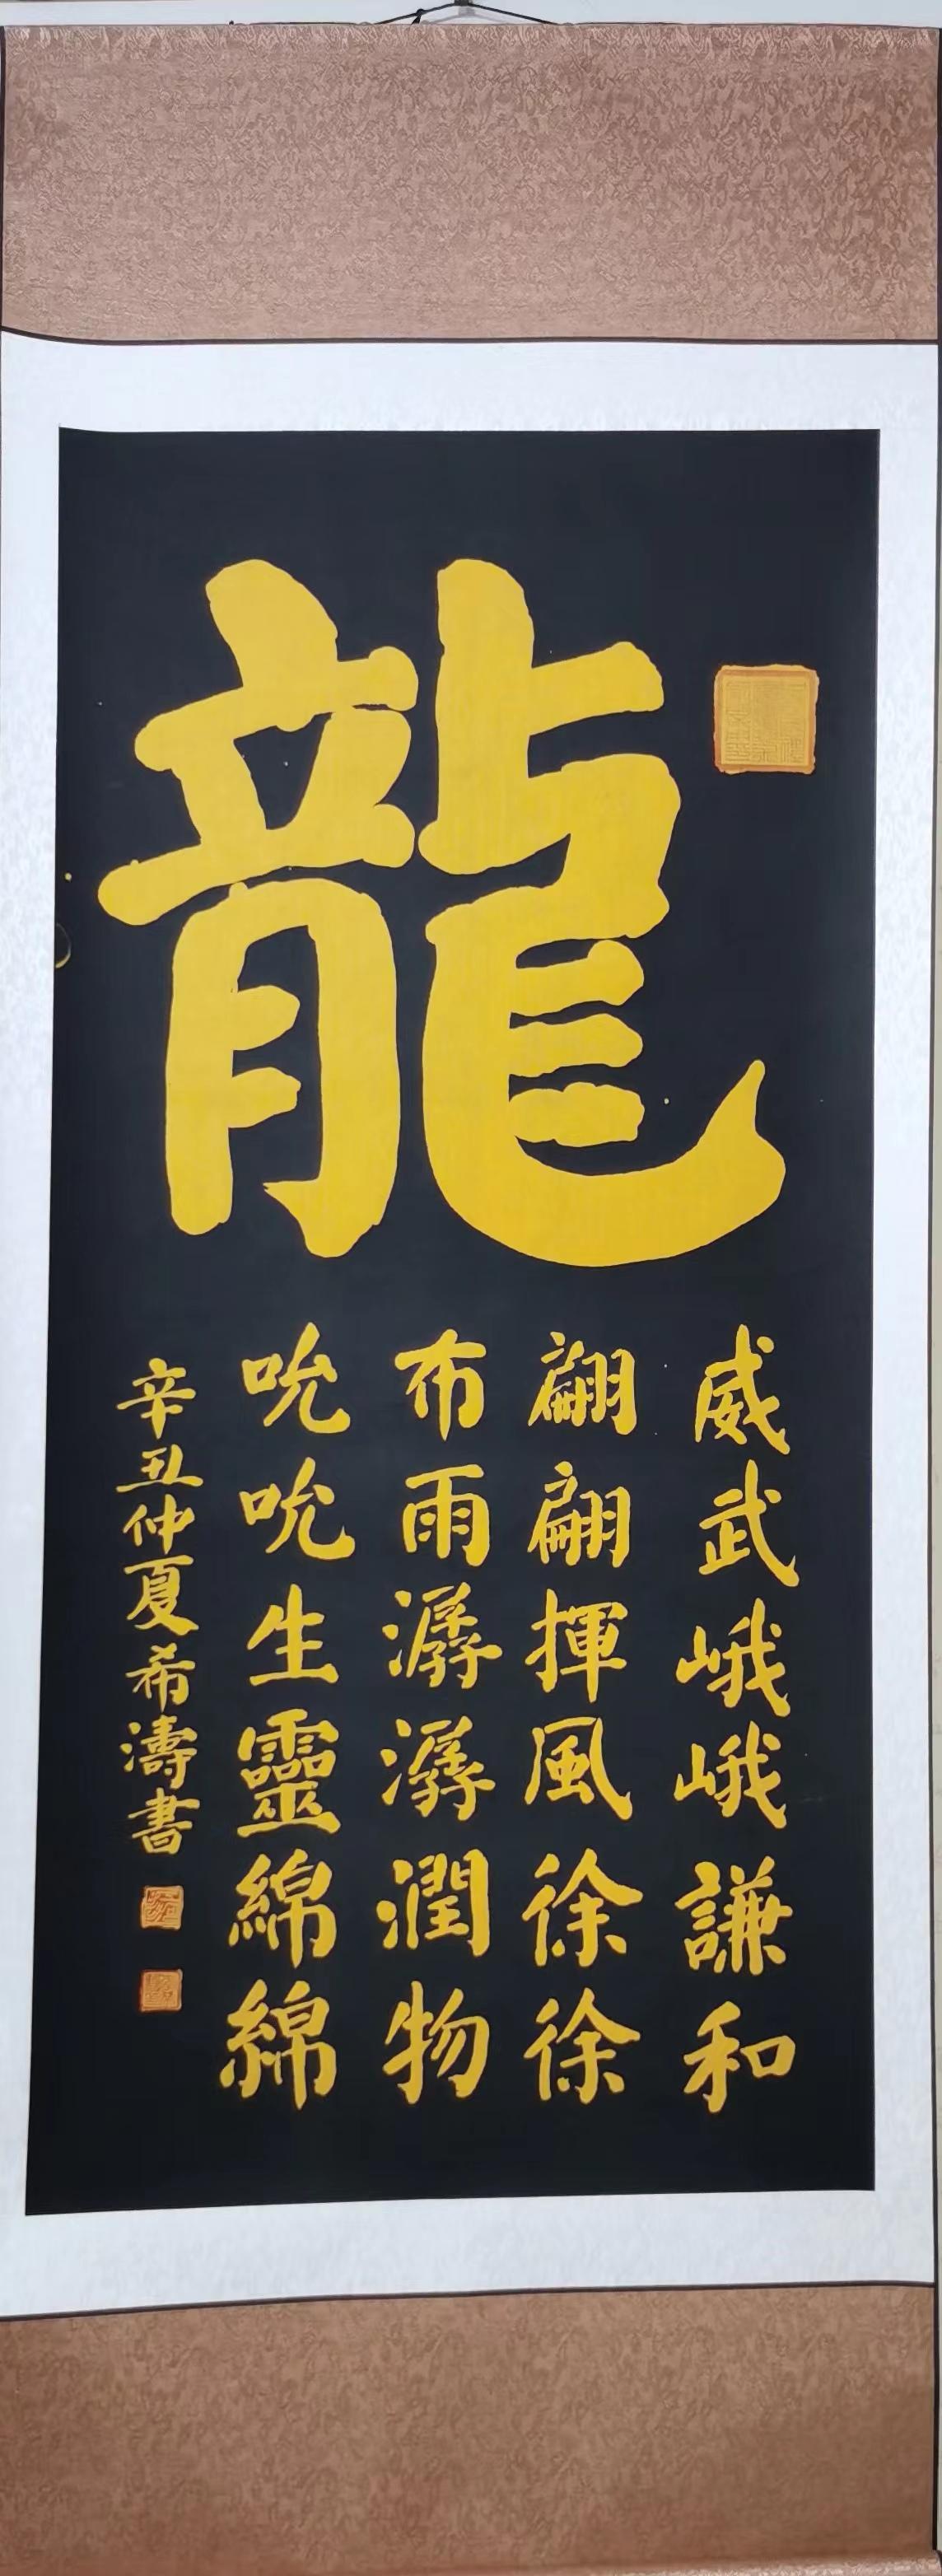 龍
威武峨峨謙和
翩翩揮風徐徐
布雨潺潺潤物
吮吮生靈綿綿
辛丑仲夏希濤書